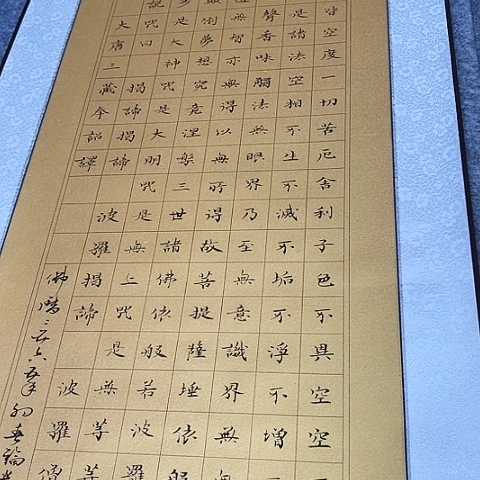 皆空度一切苦厄舍利子色不異空空
是諸法空相不生不滅不垢不淨不增
聲香味觸法無眼界乃至無意識界無
無智亦無得以無所得故菩提薩埵依般
顛倒夢想究竟涅槃三世諸佛依般若波羅
多是大神咒是大明咒是無上咒是無等等
說咒曰揭諦揭諦波羅揭諦波羅僧
大唐三藏奉詔譯
佛曆二五六五年初春